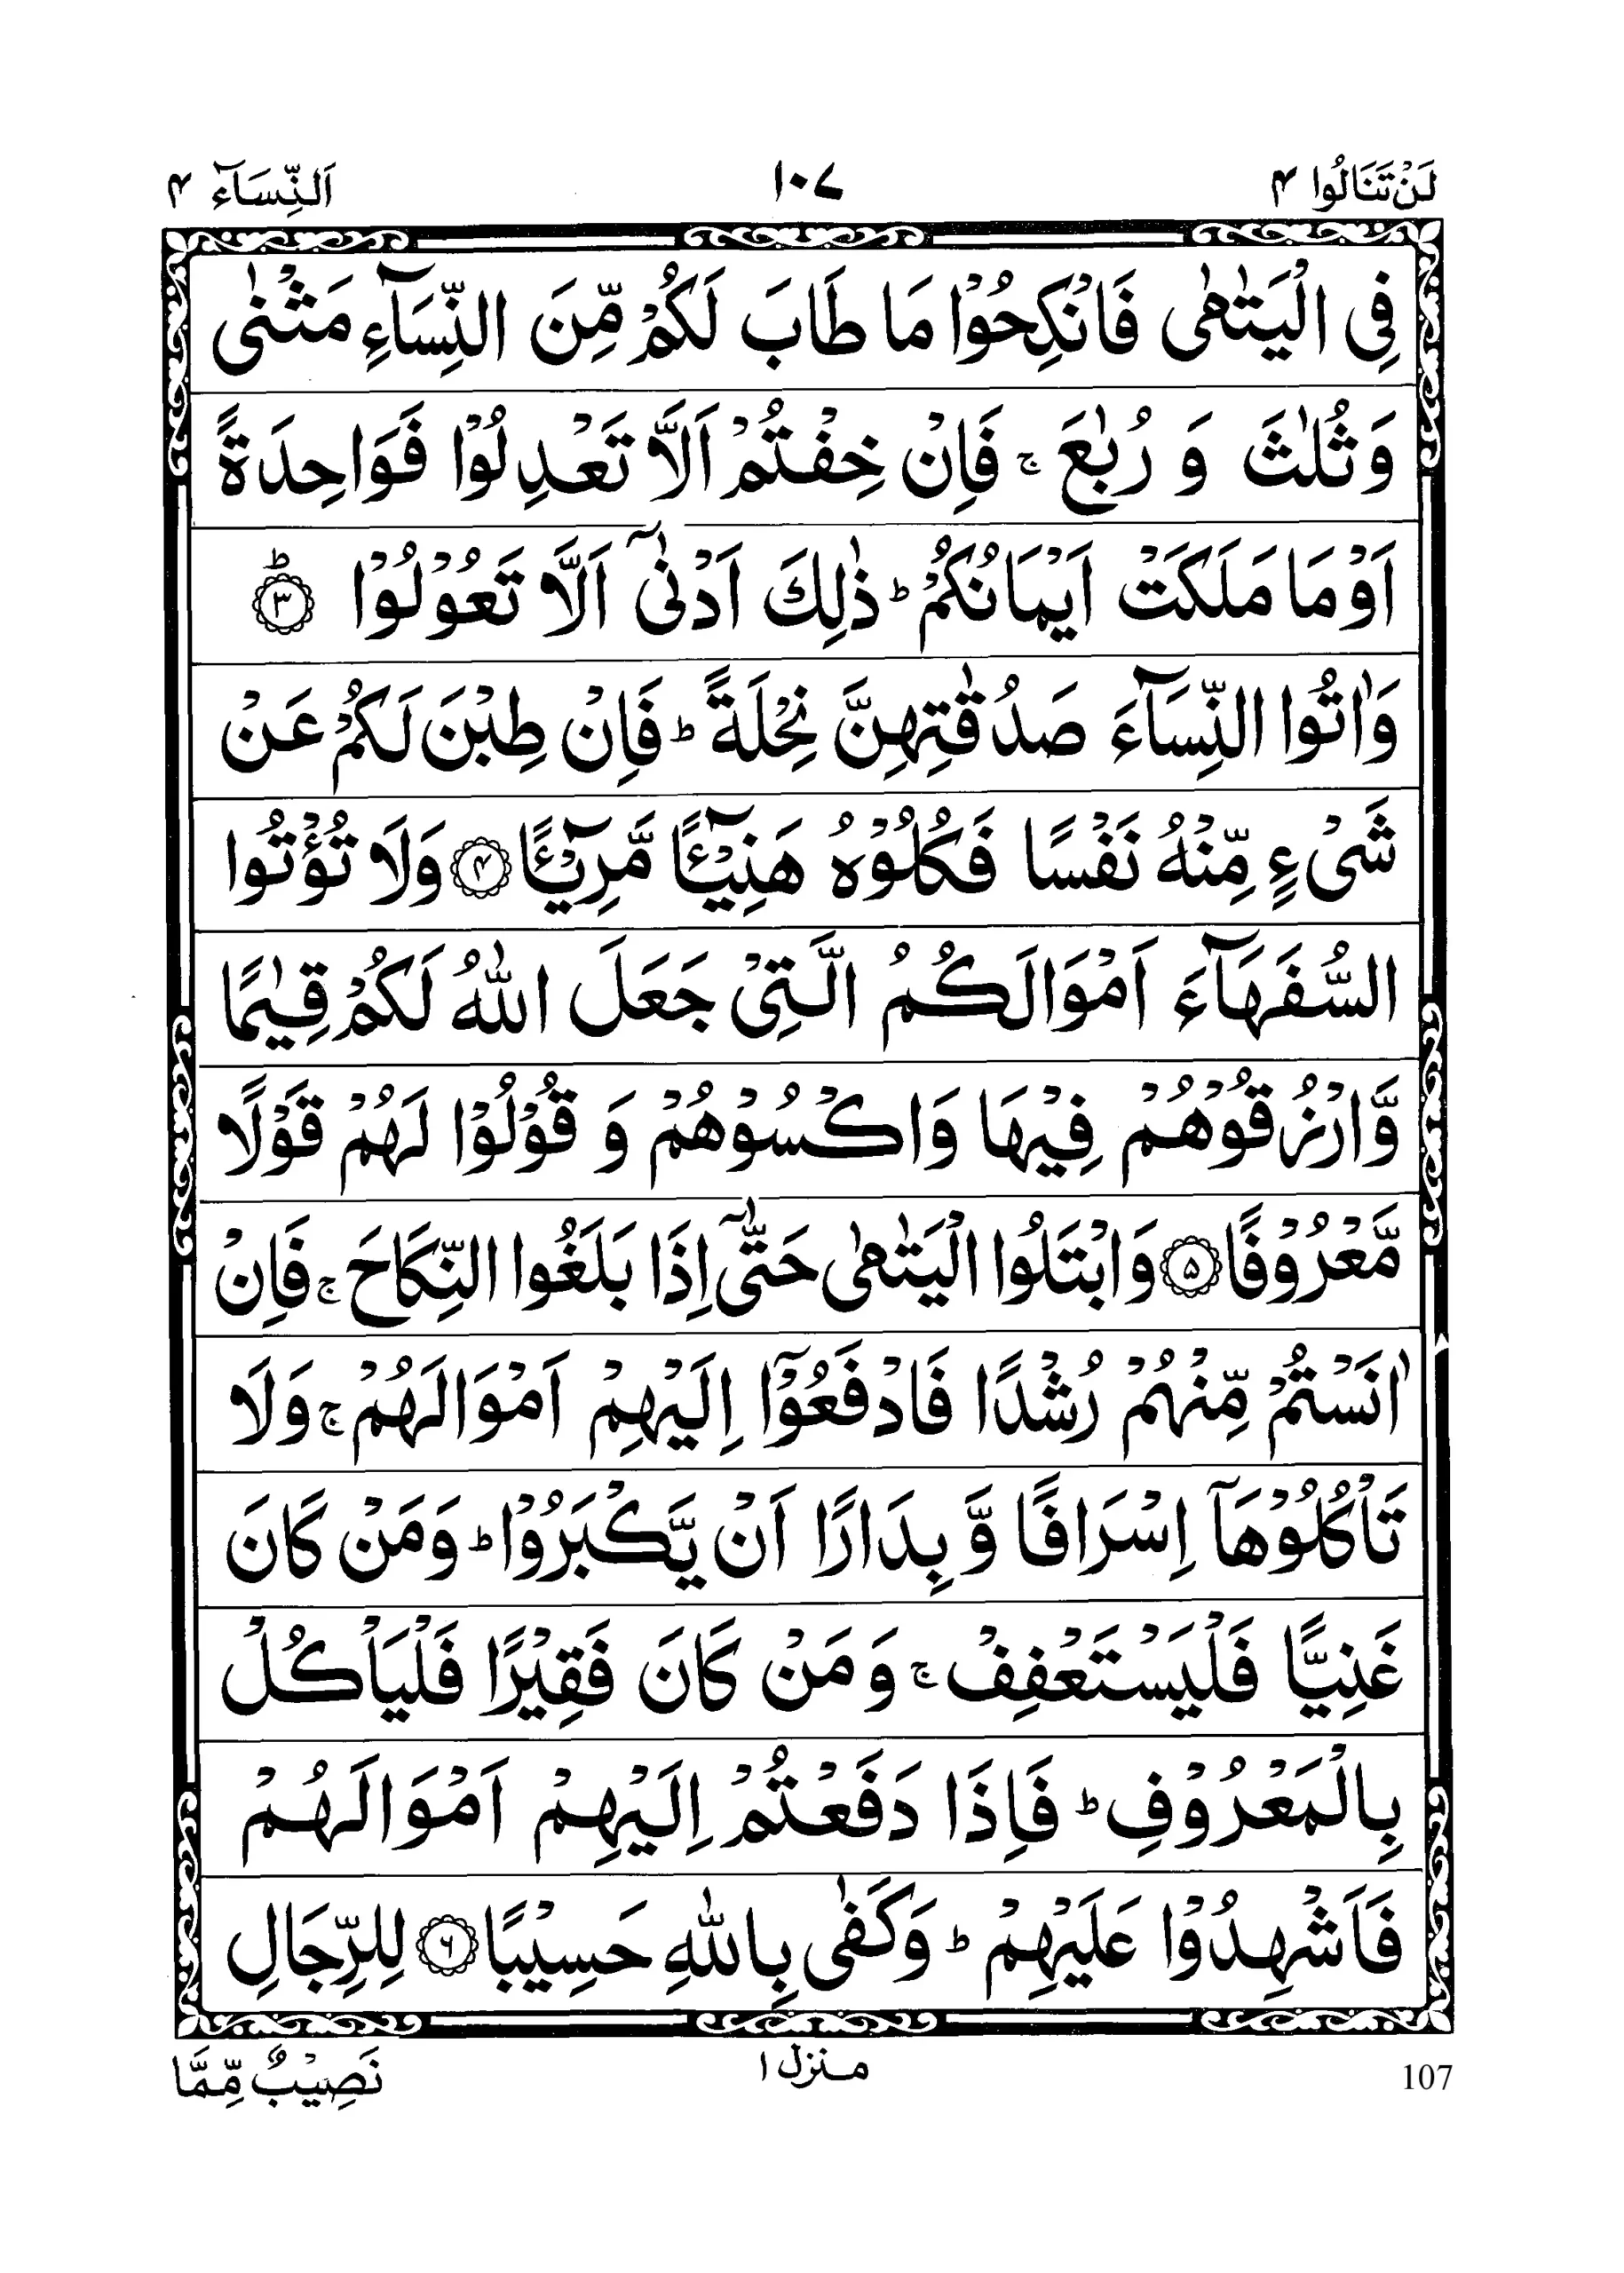 لَنْ تَنَالُوا ۴
۱۰۷
اَلنِّسَآء ۴
فِی الْیَتٰمٰی فَانْكِحُوْا مَا طَابَ لَكُمْ مِّنَ النِّسَآءِ مَثْنٰی
وَثُلٰثَ وَ رُبٰعَ ۚ فَاِنْ خِفْتُمْ اَلَّا تَعْدِلُوْا فَوَاحِدَةً
اَوْ مَا مَلَكَتْ اَیْمَانُكُمْ ؕ ذٰلِكَ اَدْنٰۤی اَلَّا تَعُوْلُوْا ؕ ﴿۳﴾
وَاٰتُوا النِّسَآءَ صَدُقٰتِهِنَّ نِحْلَةً ؕ فَاِنْ طِبْنَ لَكُمْ عَنْ
شَیْءٍ مِّنْهُ نَفْسًا فَكُلُوْهُ هَنِیْٓــًٔا مَّرِیْٓــًٔا ﴿۴﴾ وَلَا تُؤْتُوا
السُّفَهَآءَ اَمْوَالَكُمُ الَّتِیْ جَعَلَ اللّٰهُ لَكُمْ قِیٰمًا
وَّارْزُقُوْهُمْ فِیْهَا وَاكْسُوْهُمْ وَ قُوْلُوْا لَهُمْ قَوْلًا
مَّعْرُوْفًا ﴿۵﴾ وَابْتَلُوا الْیَتٰمٰی حَتّٰۤی اِذَا بَلَغُوا النِّكَاحَ ۚ فَاِنْ
اٰنَسْتُمْ مِّنْهُمْ رُشْدًا فَادْفَعُوْۤا اِلَیْهِمْ اَمْوَالَهُمْ ۚ وَلَا
تَاْكُلُوْهَاۤ اِسْرَافًا وَّ بِدَارًا اَنْ یَّكْبَرُوْا ؕ وَمَنْ كَانَ
غَنِیًّا فَلْیَسْتَعْفِفْ ۚ وَمَنْ كَانَ فَقِیْرًا فَلْیَاْكُلْ
بِالْمَعْرُوْفِ ؕ فَاِذَا دَفَعْتُمْ اِلَیْهِمْ اَمْوَالَهُمْ
فَاَشْهِدُوْا عَلَیْهِمْ ؕ وَكَفٰی بِاللّٰهِ حَسِیْبًا ﴿۶﴾ لِلرِّجَالِ
نَصِیْبٌ مِّمَّا
منزل ۱
107